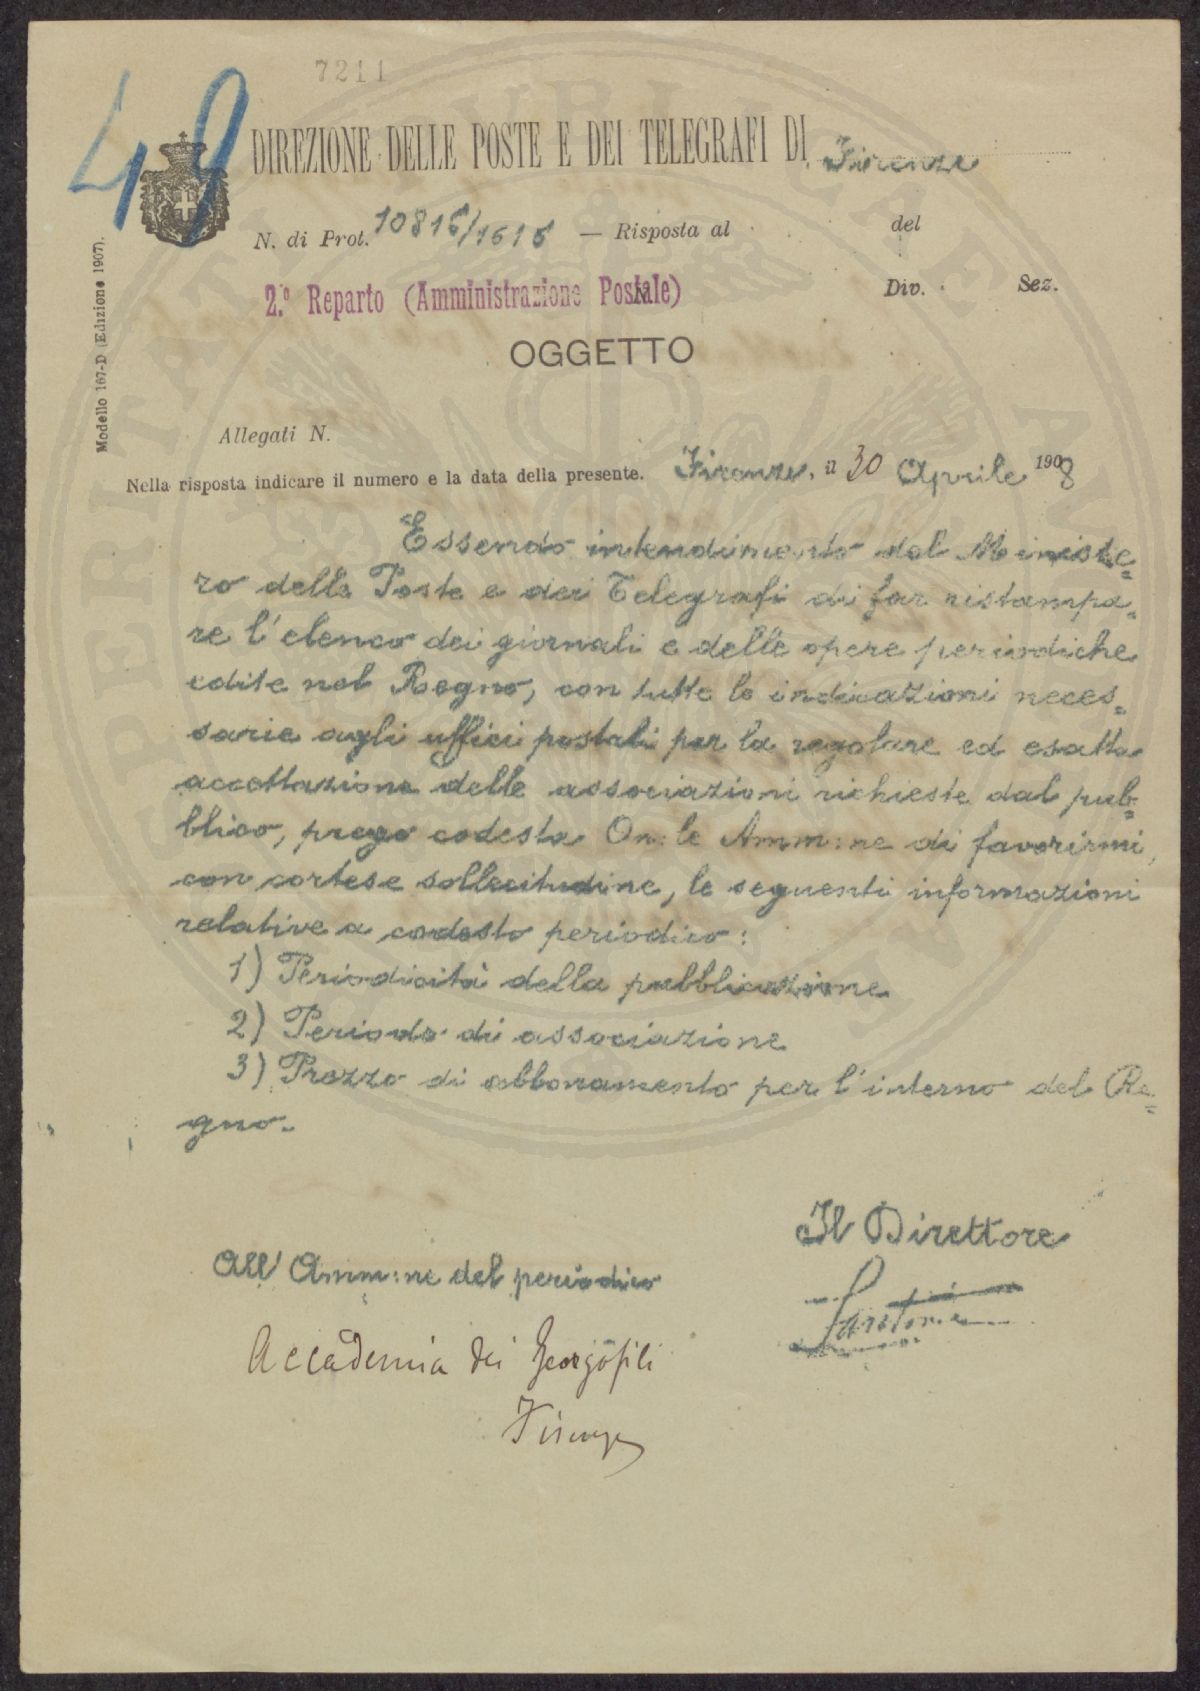 7211
49
DIREZIONE DELLE POSTE E DEI TELEGRAFI DI Firenze
N. di Prot. 10816/1616 — Risposta al del
2.° Reparto (Amministrazione Postale) N. Div. Sez.
OGGETTO
Modello 167-D (Edizione 1907).
Allegati N.
Nella risposta indicare il numero e la data della presente. Firenze, il 30 Aprile 1908
Essendo intendimento del Ministe=
ro delle Poste e dei Telegrafi di far ristampa=
re l'elenco dei giornali e delle opere periodiche
edite nel Regno, con tutte le indicazioni neces=
sarie agli uffici postali per la regolare ed esatta
accettazione delle associazioni richieste dal pub=
blico, prego codesta On:le Amm:ne di favorirmi,
con cortese sollecitudine, le seguenti informazioni
relative a codesto periodico:
1) Periodicità della pubblicazione
2) Periodo di associazione
3) Prezzo di abbonamento per l'interno del Re=
gno.
Il Direttore
All'Amm:ne del periodico
Accademia dei Georgofili
Firenze